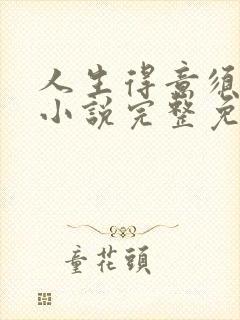 人生得意須
小說完整免
童花頭